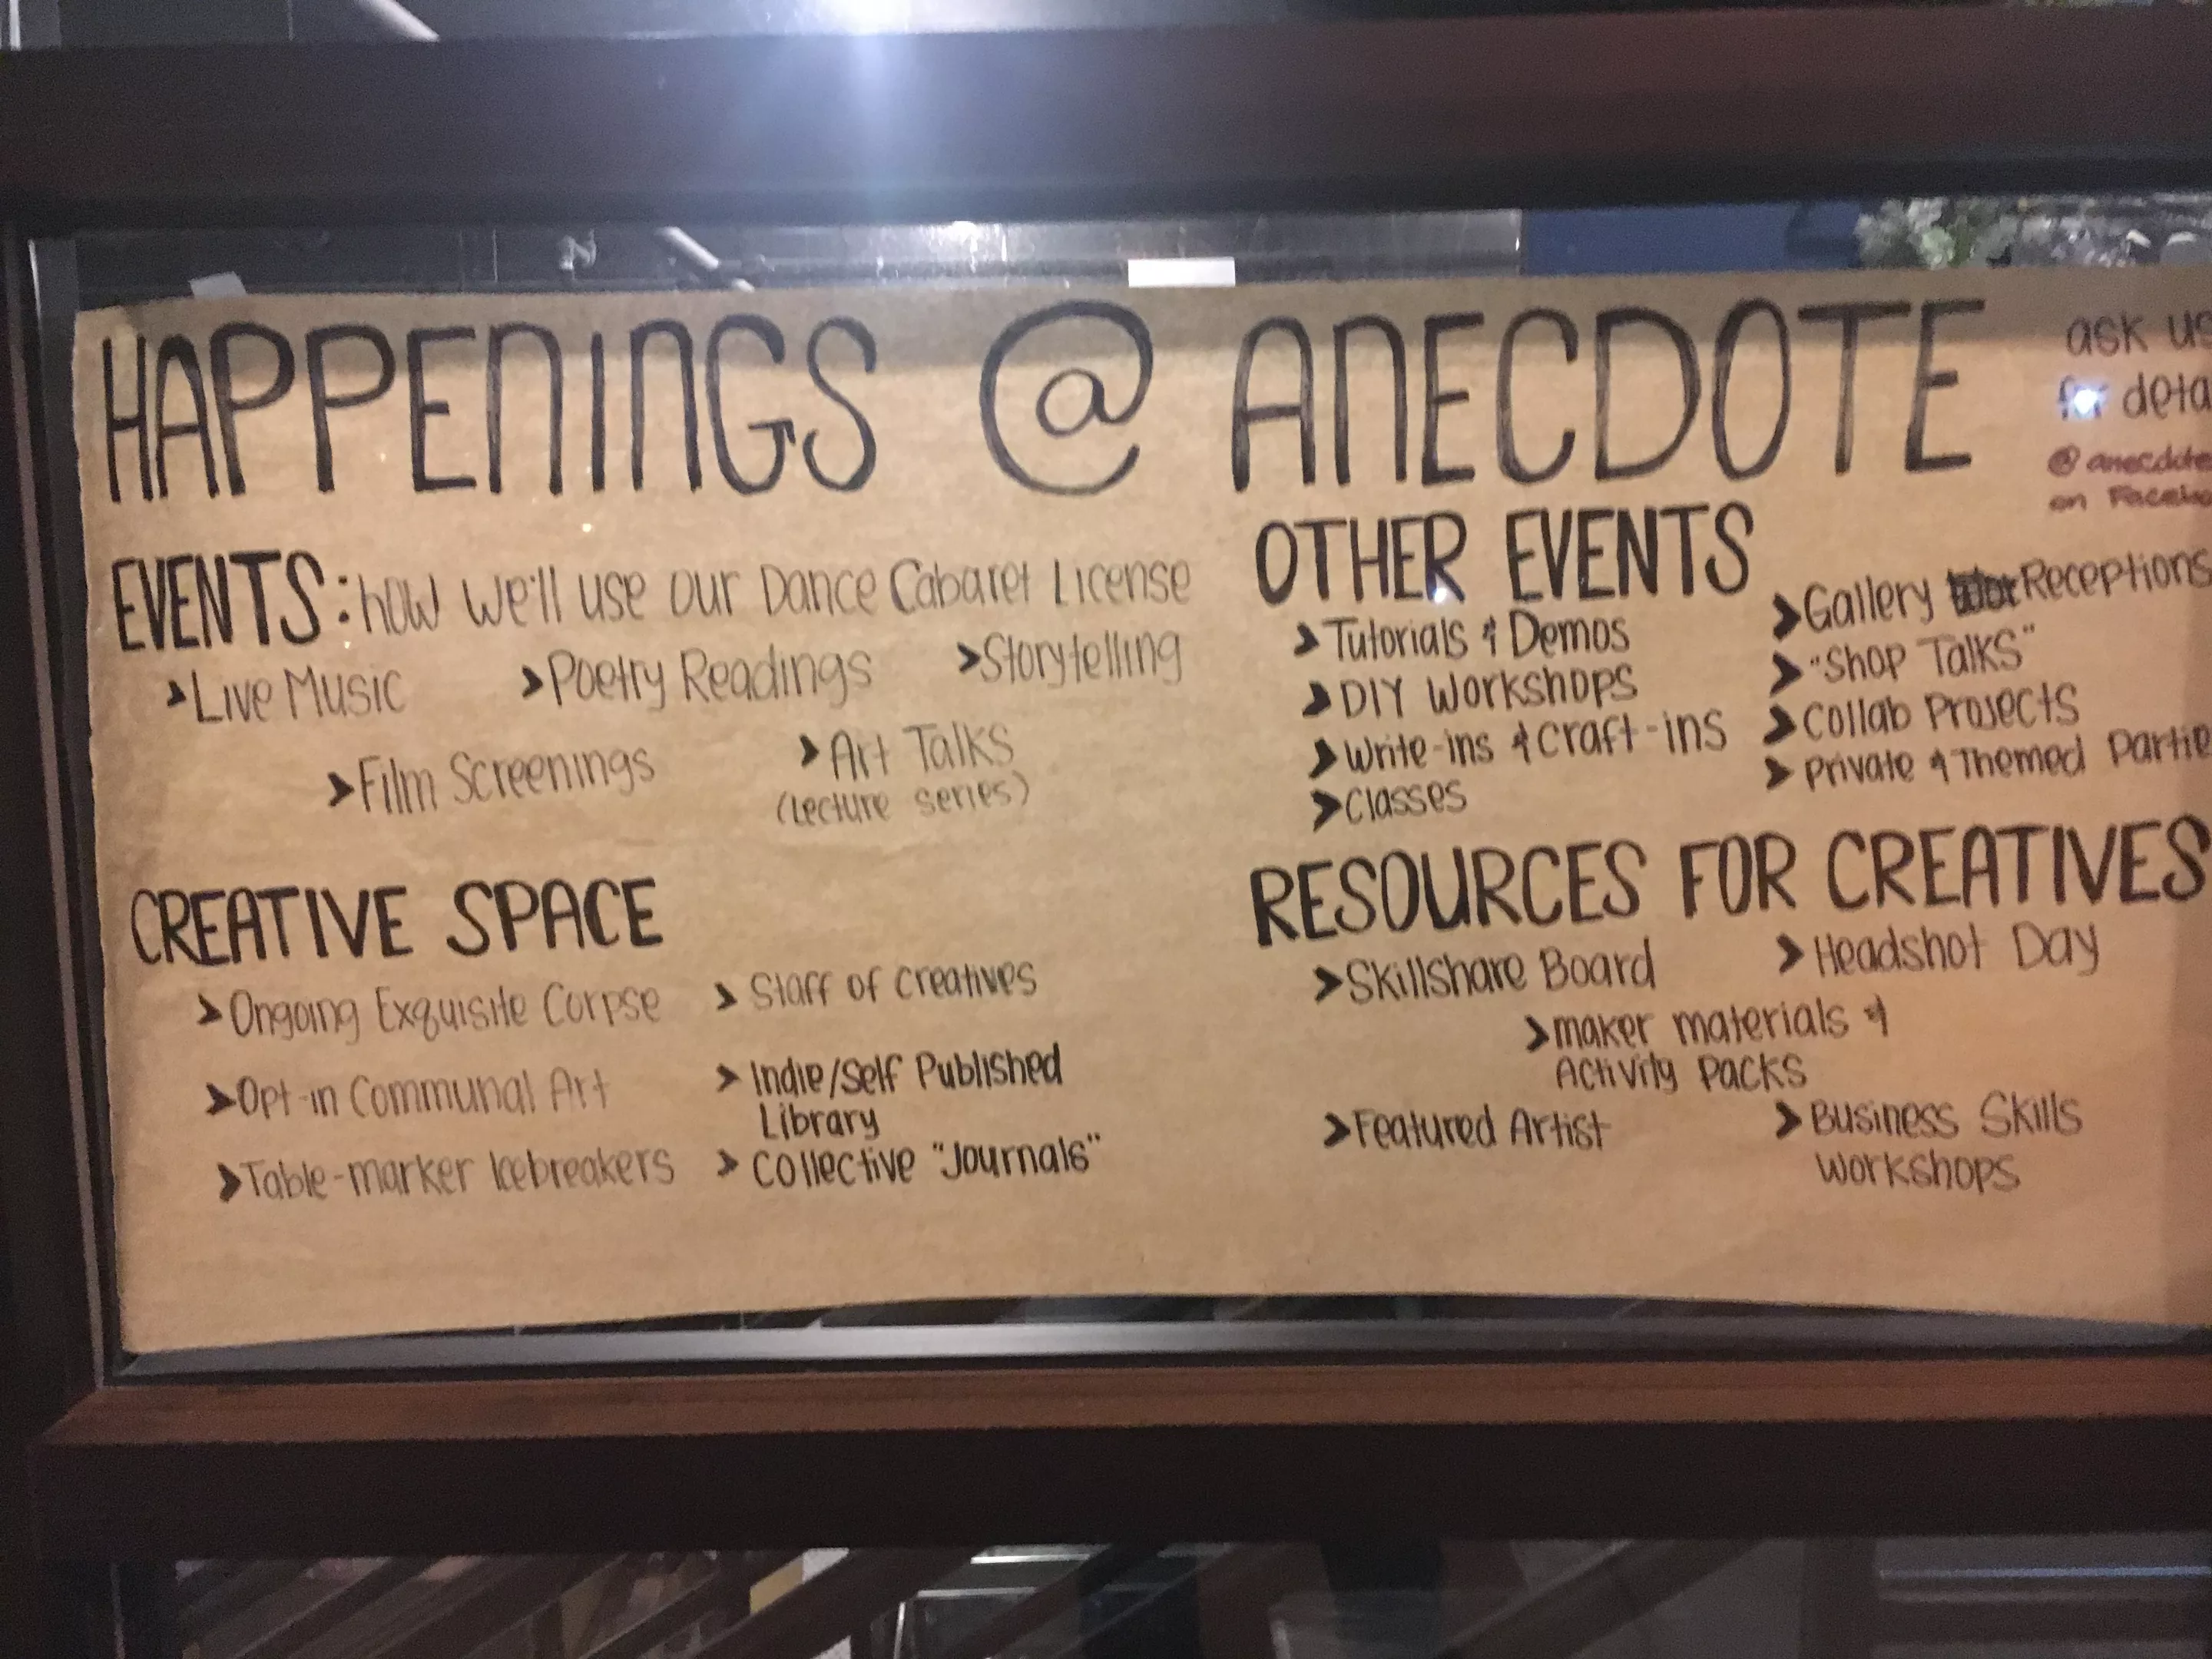 HAPPENINGS @ ANECDOTE
ask us
for deta
@anecdote
on Facebo
EVENTS: how we'll use our Dance Cabaret License
➤Live Music ➤Poetry Readings ➤Storytelling
➤Film Screenings ➤Art Talks
(Lecture series)
CREATIVE SPACE
➤Ongoing Exquisite Corpse
➤Opt-in Communal Art
➤Table-marker Icebreakers
➤Staff of Creatives
➤Indie/Self Published
Library
➤Collective "Journals"
OTHER EVENTS
➤Tutorials & Demos
➤DIY Workshops
➤Write-ins & Craft-ins
➤Classes
➤Gallery Receptions
➤"Shop Talks"
➤Collab Projects
➤Private & Themed Partie
RESOURCES FOR CREATIVES
➤Skillshare Board ➤Headshot Day
➤maker materials &
Activity Packs
➤Featured Artist ➤Business Skills
Workshops